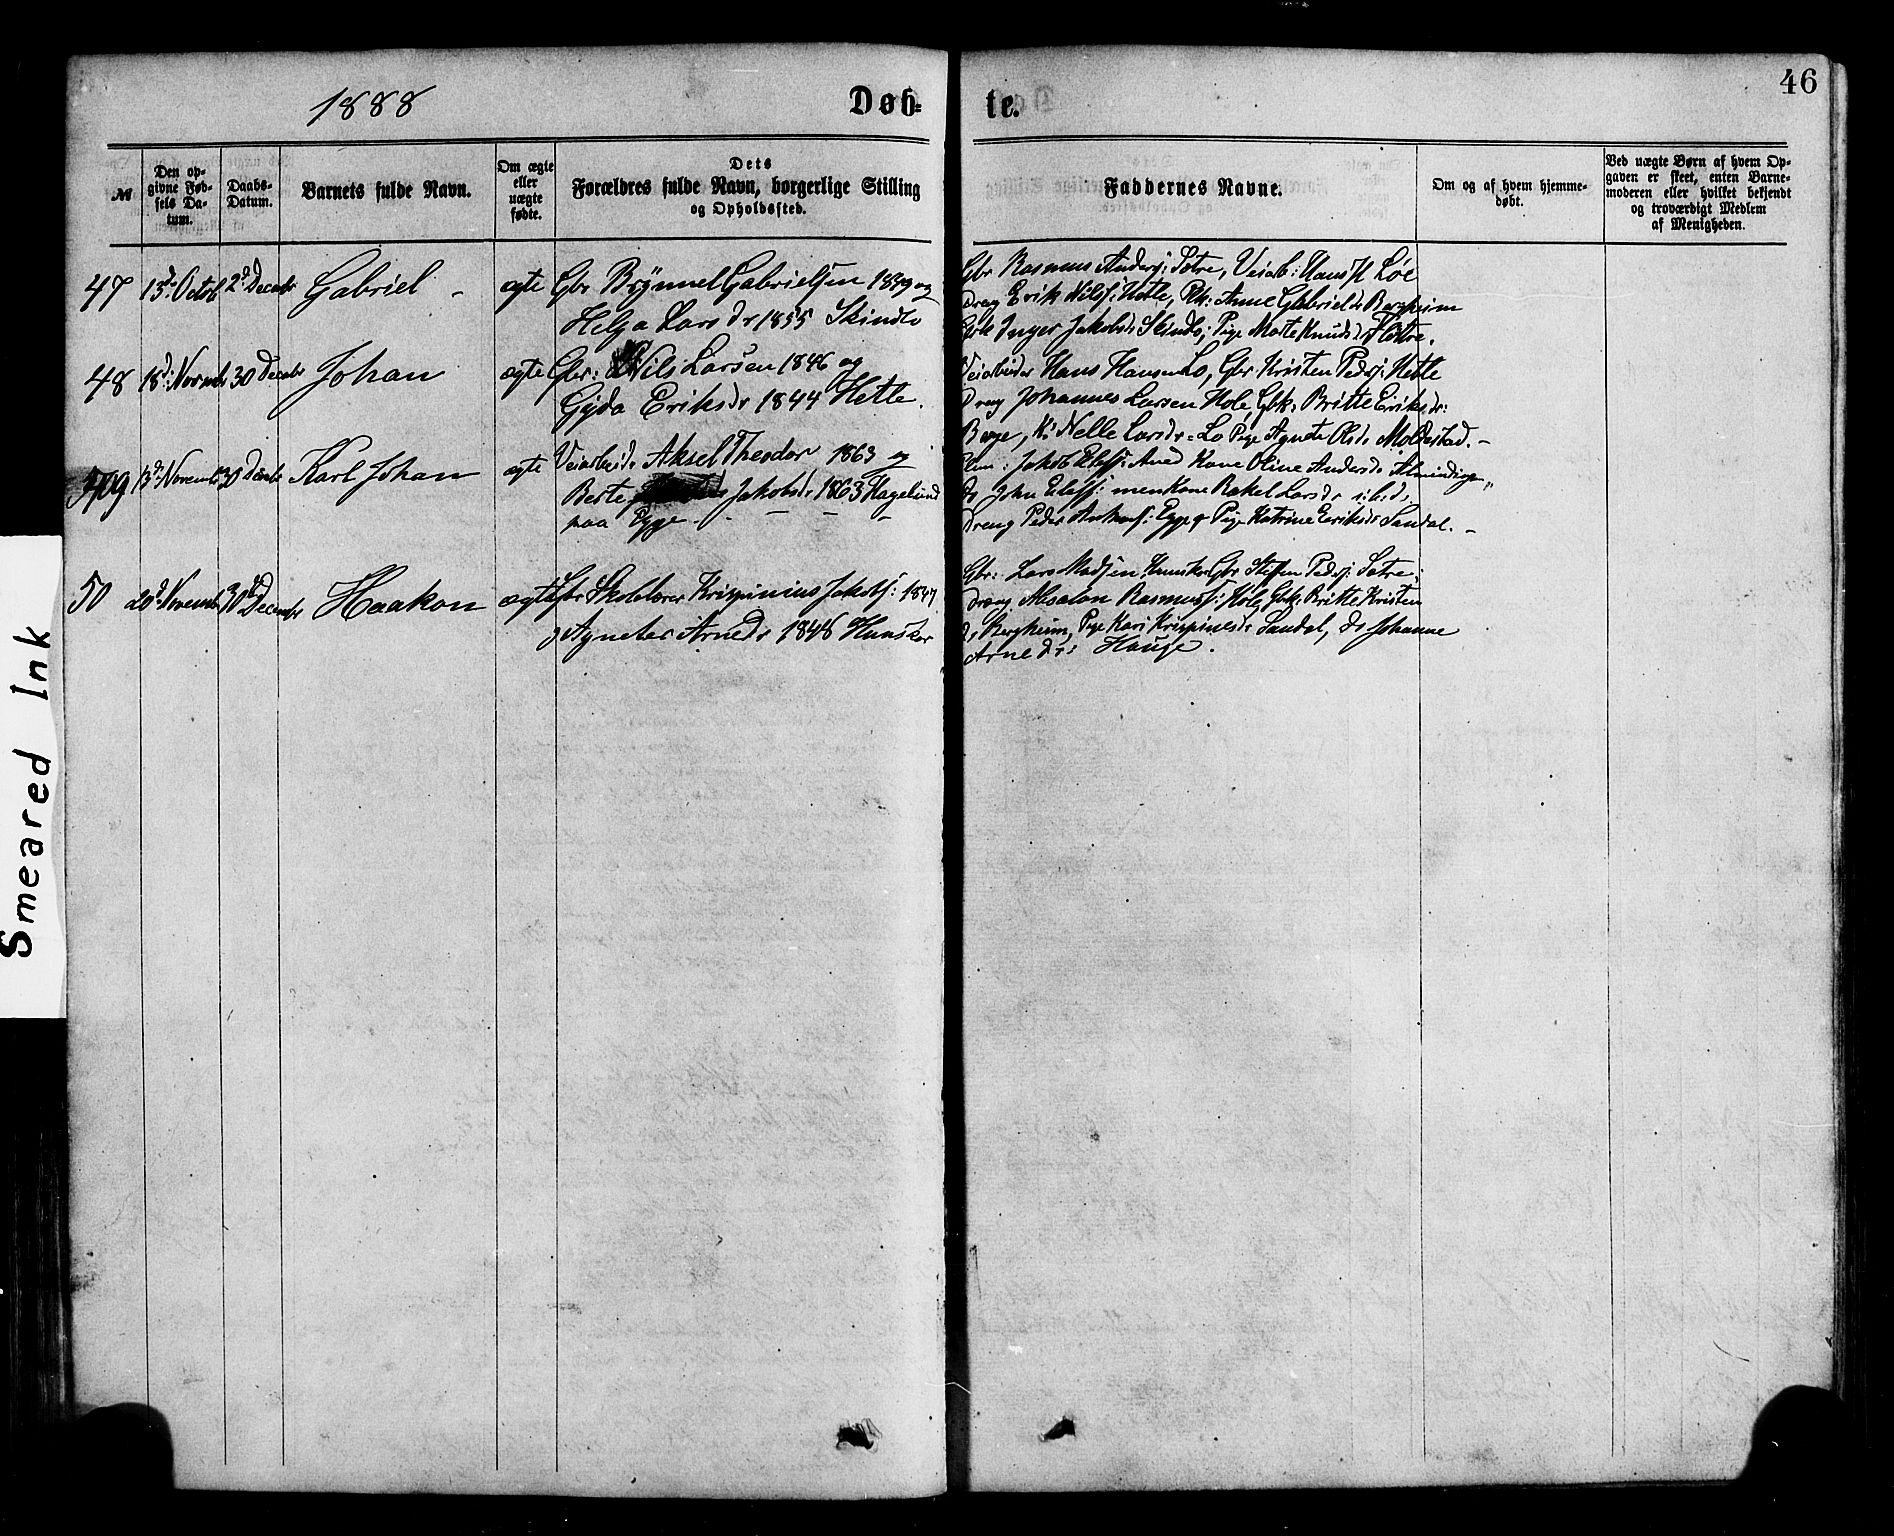 1888
Døb=
te.
46
№
Den op-
givne Fød-
sels Da-
tum.
Daabs-
Datum.
Barnets fulde Navn.
Om ægte
eller
uægte
fødte.
Dets
Forældres fulde Navn, borgerlige Stilling
og Opholdssted.
Faddernes Navne.
Om og af hvem hjemme-
døbt.
Ved uægte Børn af hvem Op-
gaven er skeet, enten Barne-
moderen eller hvilket bekjendt
og troværdigt Medlem
af Menigheden.
47 15d Octob 2d Decebr Gabriel - ægte Gbr Brynnel Gabrielsen og
Helga Larsdr 1855 Skindlo
Gbr Rasmus Anders: Sotre, Veiarb: Hans H Løe
Dreng Erik Nils: Hetle, Anne Gabrielsdr Bergheim
Gbk Inger Jakobsdr Skindlo, Pige Marte Knudsdr Flotre.
48 18d: Novmbr 30 Decebr Johan ægte Gbr: Nils Larsen 1846 og
Gjda Eriksdr 1844 Hetle.
Veiarbeider Hans Hansen Lo, Gbr Kristen Peders: Hetle
Dreng Johannes Larsen Hole, Gbk. Britte Eriksdr:
Berge, K: Nelle Larsdr: Lo Pige Agnete Olsdr Moldestad. -
49 13d: Novembr 30 Decebr Karl Johan ægte Veiarbeidr Aksel Theodor 1863 og
Berte Jakobsdr 1863 Hagelund
paa Egge - - - - -
Jakob Elefs: Kone Oline Andersdr Almindingen
do John Elefs: Kone Rakel Larsdr
Dreng Peder Egge Pige Katrine Eriksdr Sandal. -
50 20d Novembr 30te Decembr Haakon ægte Skolelærer Krispinius Jakobs: 1847
og Agnete Arnedr 1848 Hunsker
Gbr: Lars Madsen Hunsker Gbr Steffen Peders: Sotre,
Dreng Absalon Rasmus: Hole Gbk. Britte Kristen
dr Bergheim, Pige Kari Krispinesdr Sandal, do Johanne
Arnedr: Hauge.
Smeared Ink